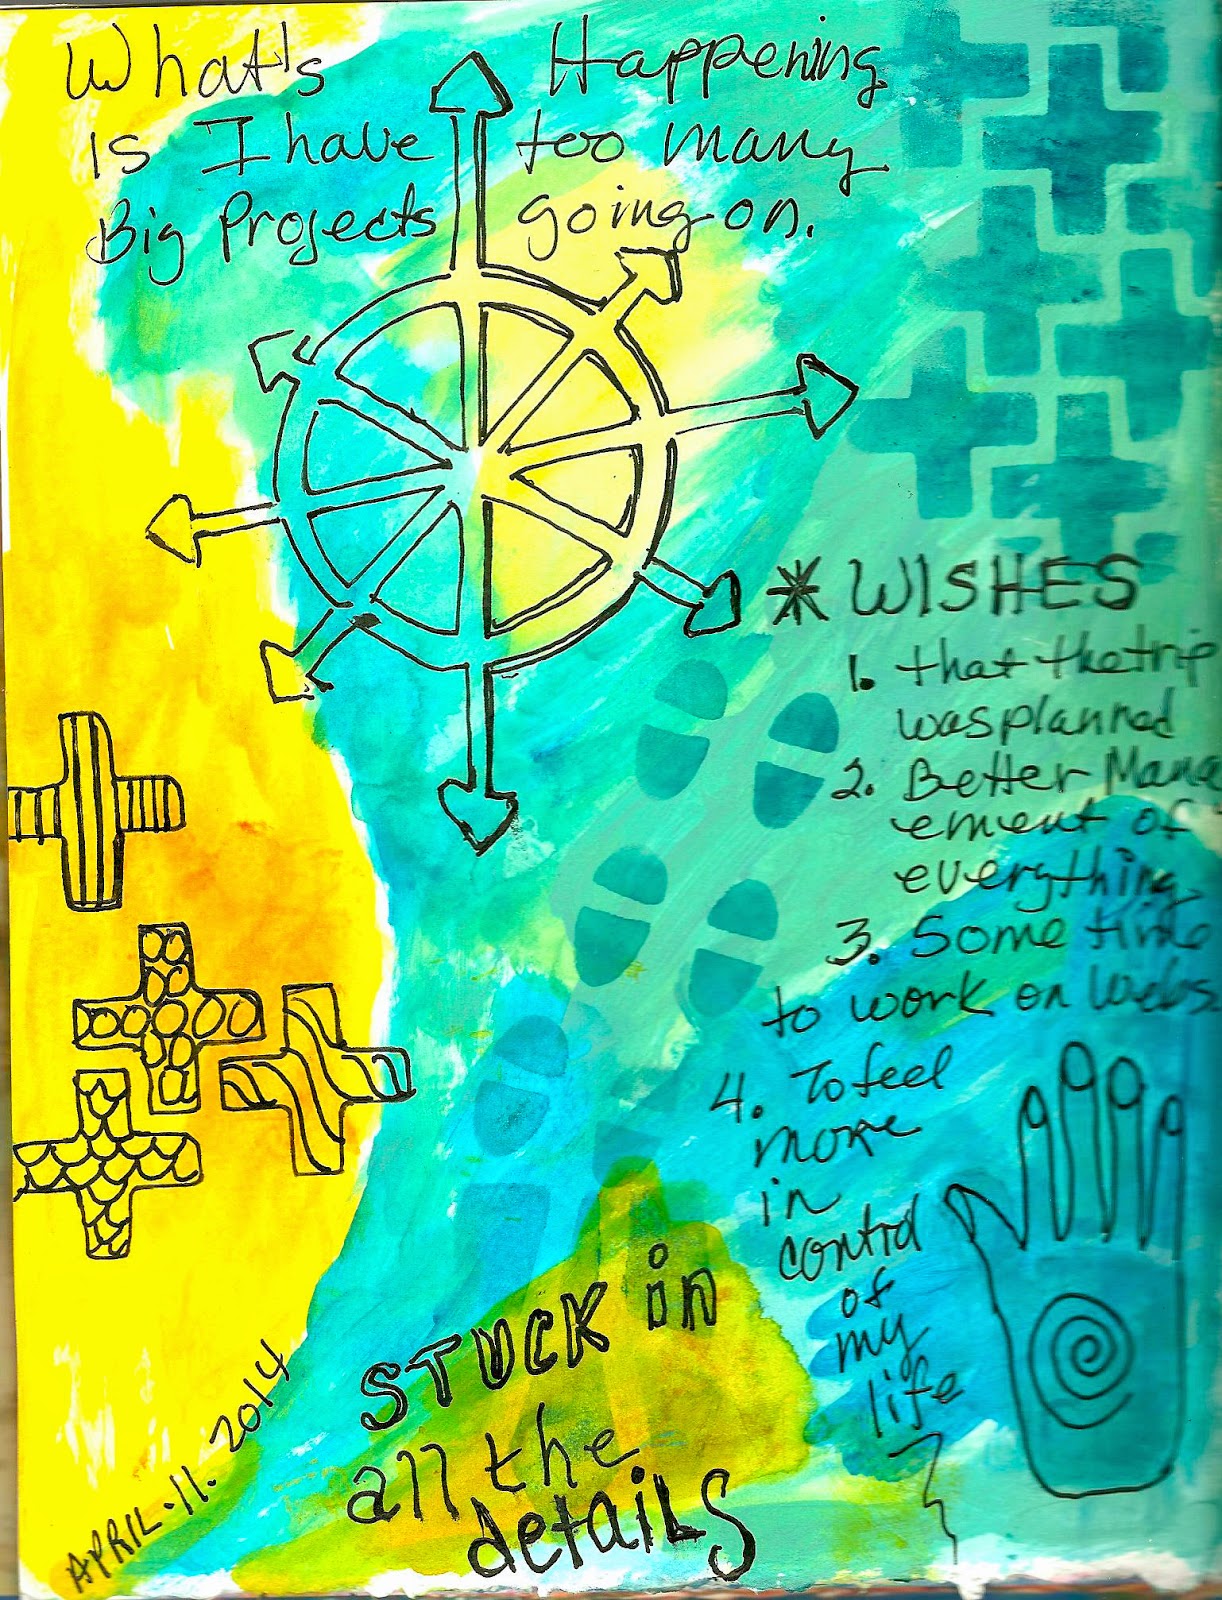 What's Happening
is I have too many
Big Projects going on.
* WISHES
1. that the trip
was planned
2. Better Mana
ement of
everything
3. Some time
to work on Webs
4. To feel
more
in
control
of
my
life
STUCK in
all the
detaiLS
APRIL.11.2014